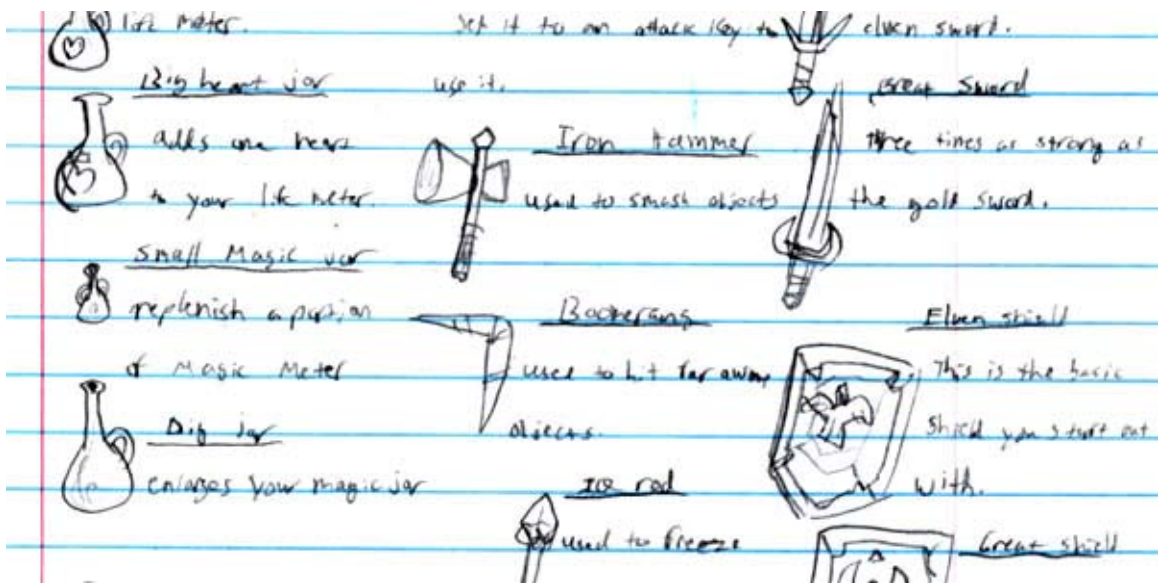 life meter.
Big heart jar
adds one heart
to your life meter.
Small Magic jar
replenish a portion
of Magic Meter
Big jar
enlarges your magic jar
set it to an attack key to
use it.
Iron Hammer
used to smash objects
Boomerang
used to hit far away
objects.
Ice rod
used to freeze
elven sword.
Great Sword
three times as strong as
the gold sword.
Elven shield
This is the basic
shield you start out
with.
Great shield